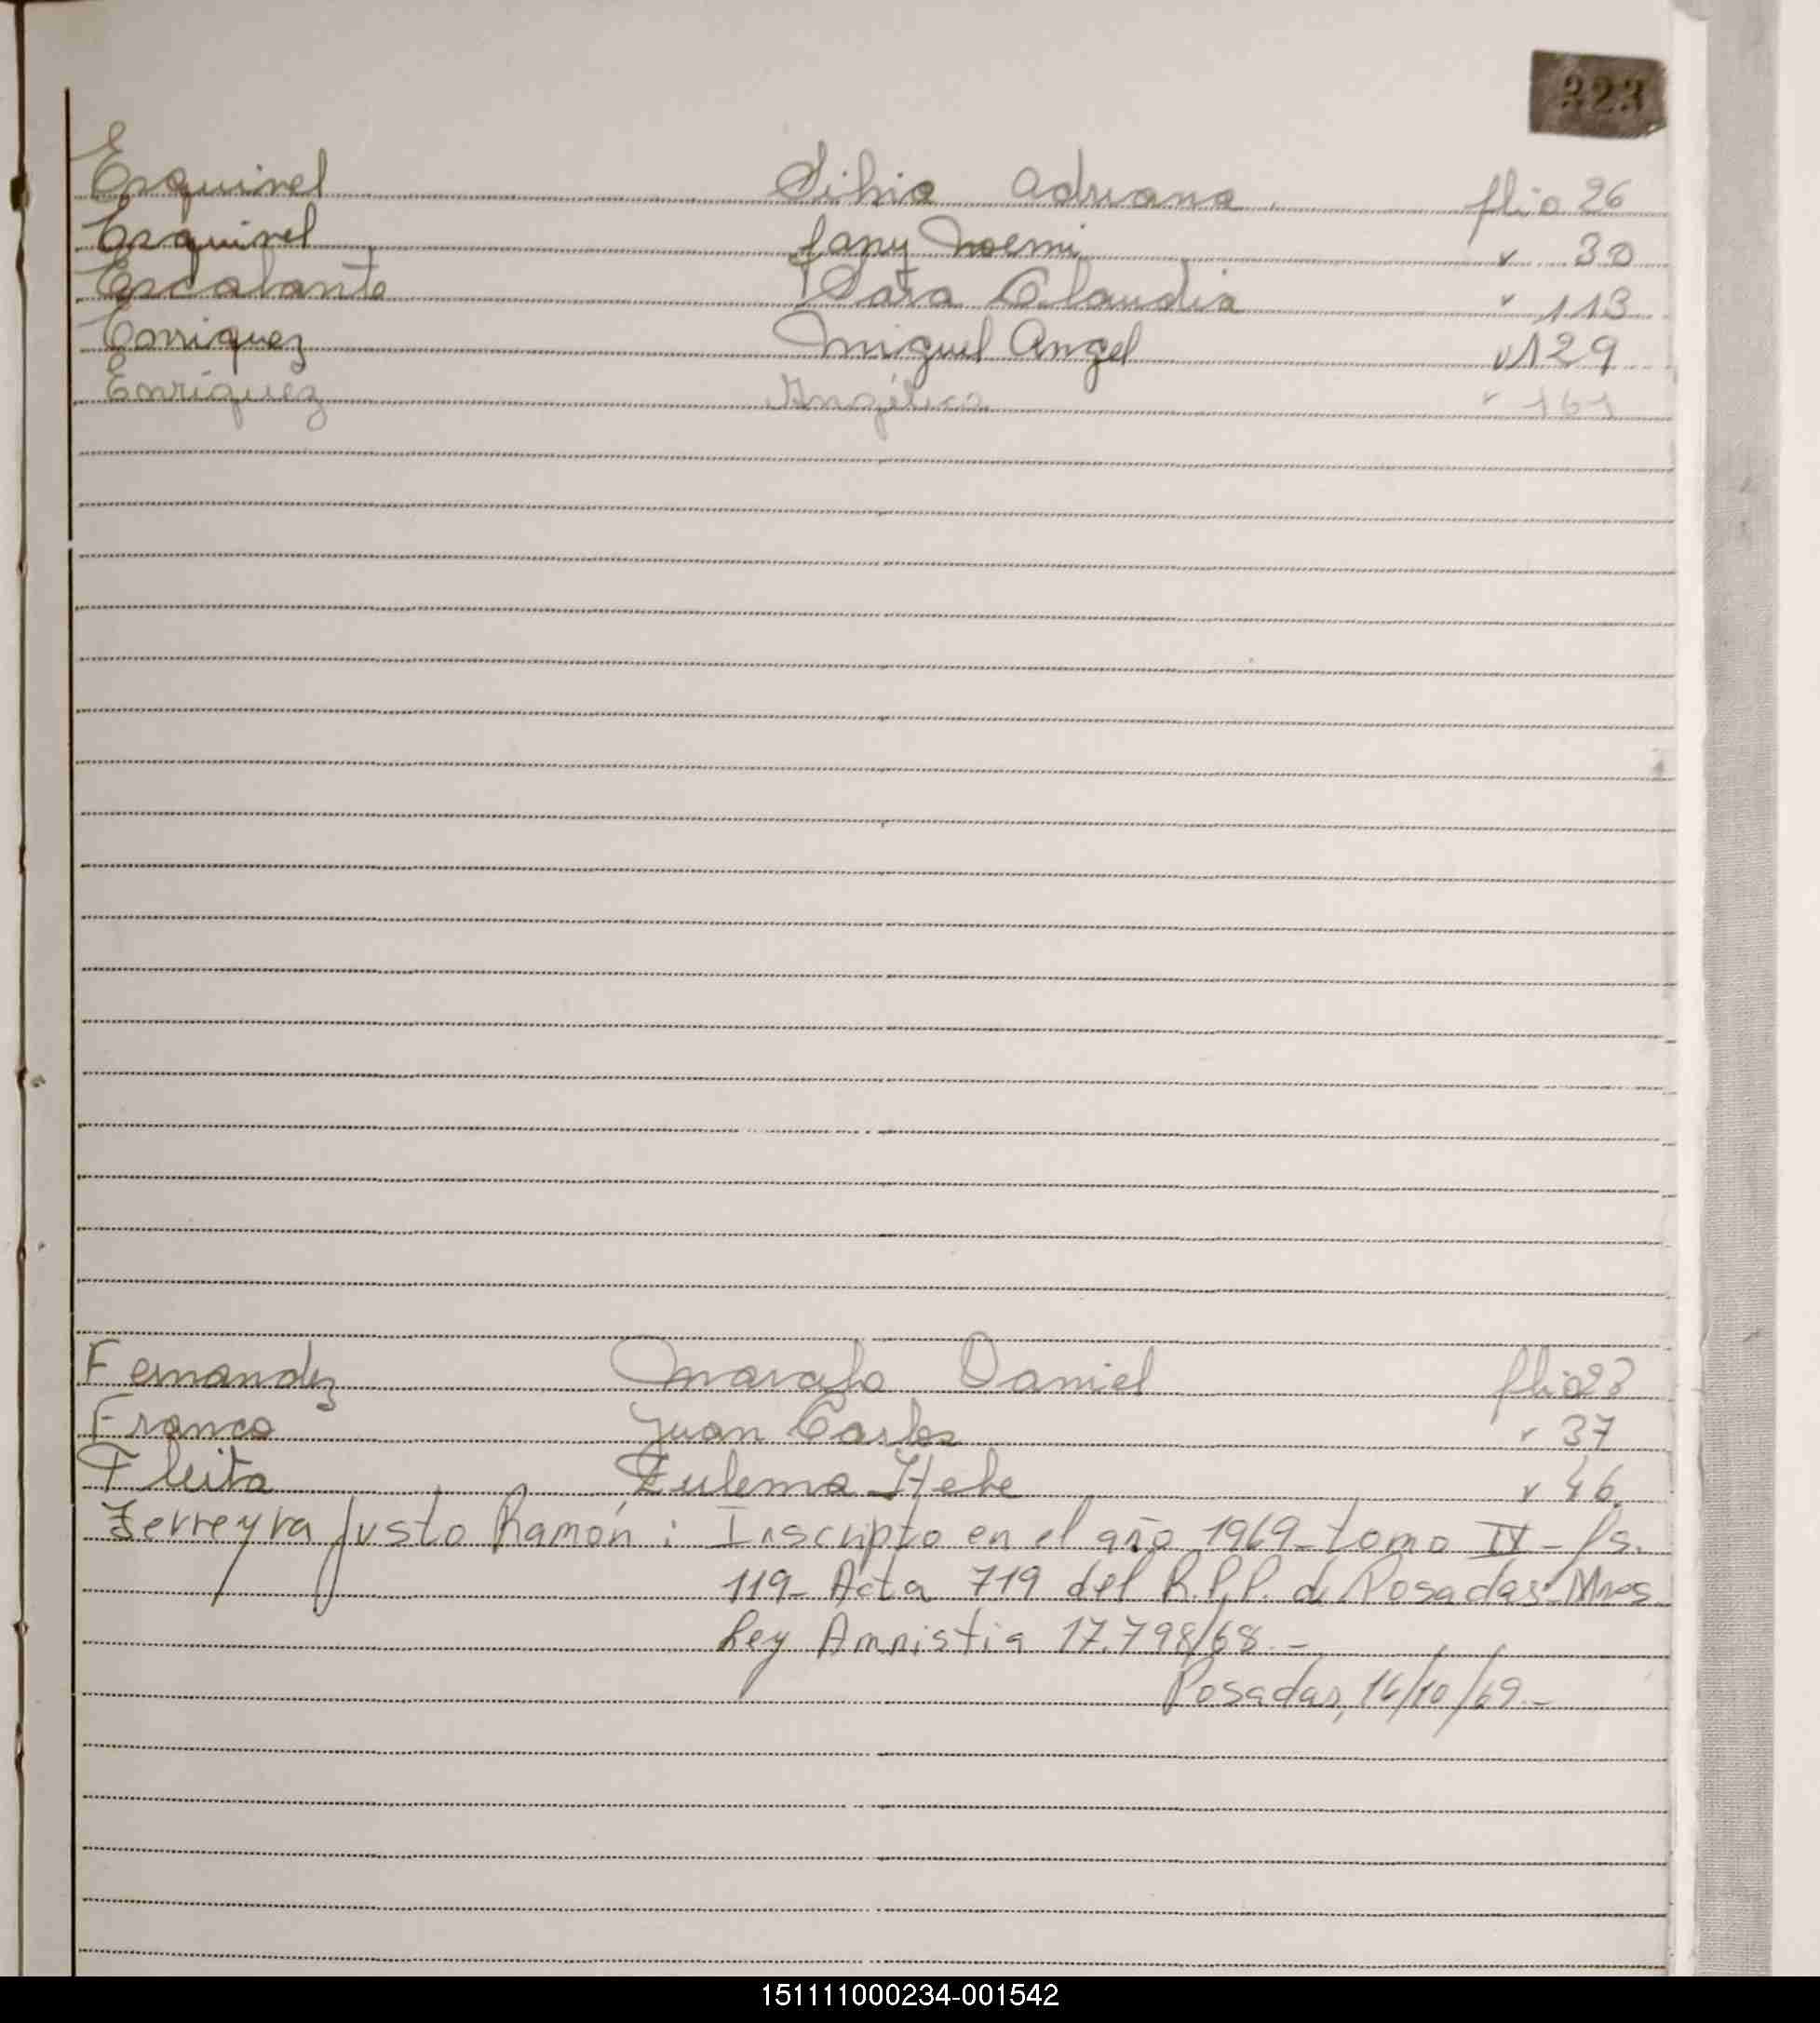 323
Esquivel Silvia Adriana. flio 26
Esquivel fany Noemi " 30
Escalante Sara Claudia " 113
Enriquez Miguel Angel " 129
Enriquez Angélica " 161
Fernandez Daniel flio 23
Franco Juan Carlos " 37
Fleita Zulema Hebe " 46
Ferreyra Justo Ramón: Inscripto en el año 1969 - tomo IV - fs.
119 - Acta 719 del R.P.P. de Posadas - Mnes
Ley Amnistia 17.798/68. -
Posadas, 16/10/69. -
151111000234-001542